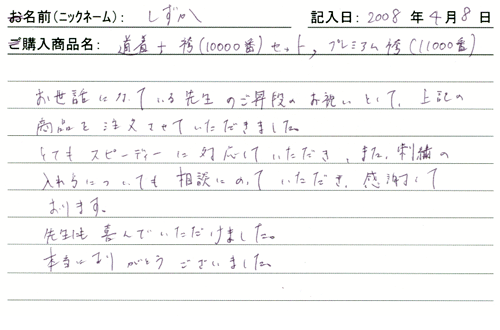 お名前(ニックネーム): しずか 記入日: 2008 年 4月 8 日
ご購入商品名: 道着+袴(10000番)セット, プレミアム袴(11000番)
お世話になっている先生のご昇段のお祝いとして、上記の
商品を注文させていただきました。
とてもスピーディーに対応していただき、また、刺繍の
入れ方についても相談にのっていただき、感謝して
おります。
先生にも喜んでいただけました。
本当にありがとうございました。